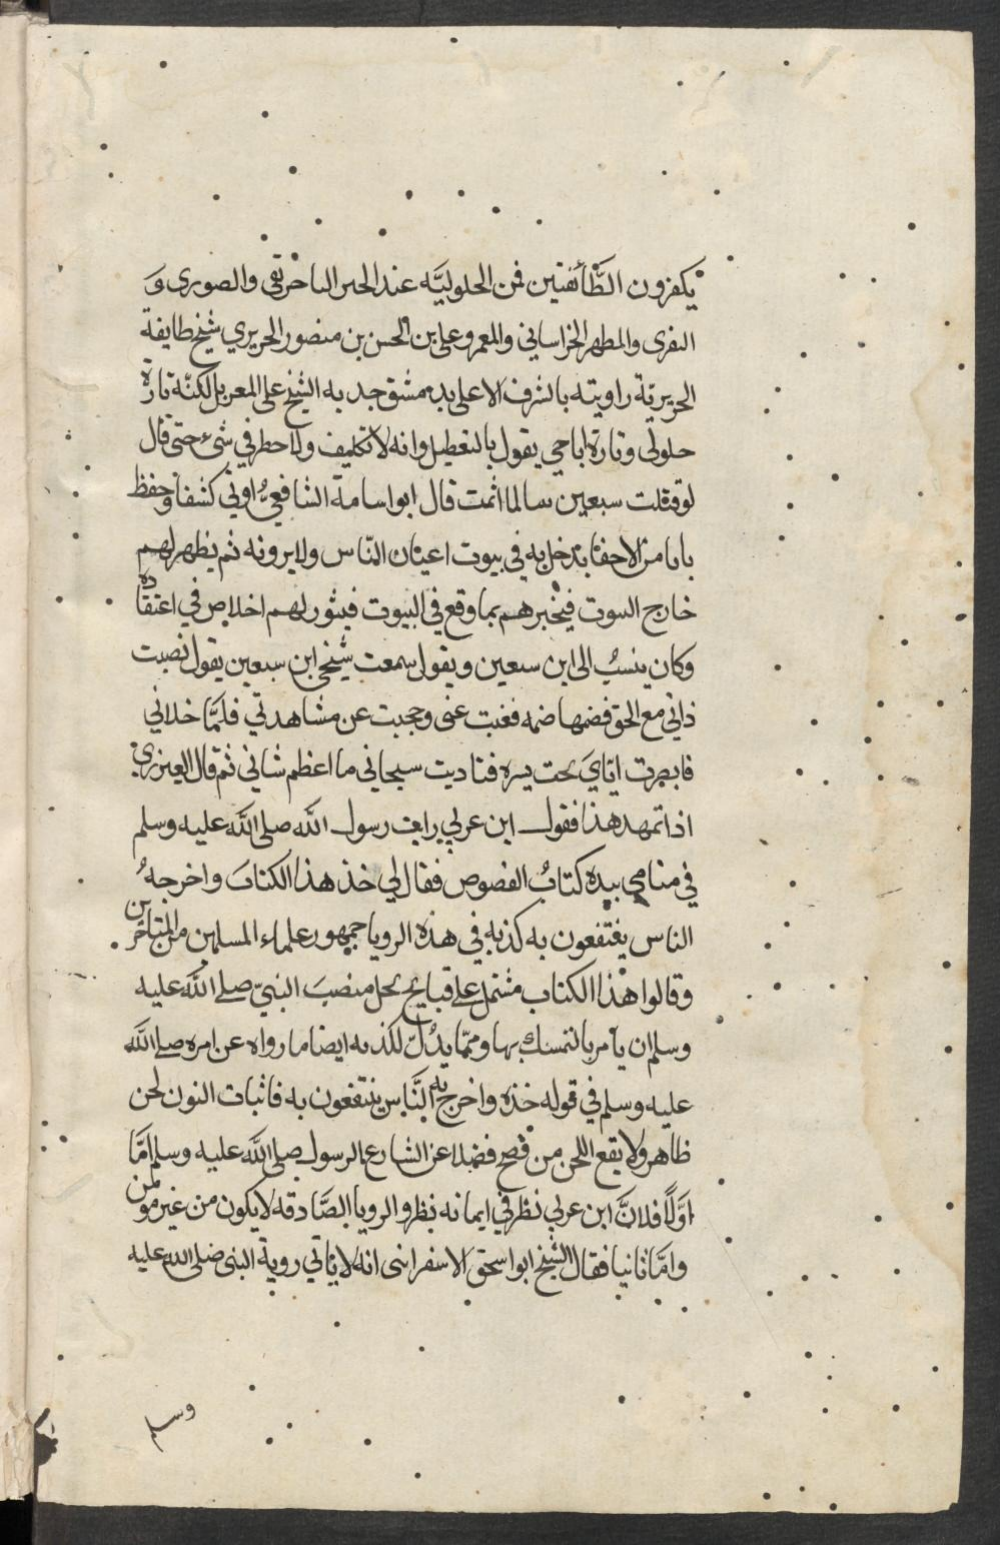 يكفرون الطّائفتين فمن الحلوليّه عند الحس الباخرتقى والصورى وَ
النفرى والمطهر الخراساني والمعمر وعلى بن الحسن بن منصور الحريري شيخ طايفة
الحريرية راويته بالشرف الاعلى بدمشق جد به الشيخ على المعربل لكنّه تارة
حلولى وتارة اباحي يقول بالتعطيل وانه لا تكليف ولا حظر في شىء حتى قال
لو قتلت سبعين سالما اثمت قال ابو اسامة الشافعيُّ اوتي كشفا وحفظ
بابا من الاحفا يدخل به في بيوت اعيان النّاس ولا يرونه ثم يظهر لهم
خارج السوت فيخبرهم بما وقع في البيوت فيثور لهم اخلاص في اعتقاده
وكان ينسبُ الى ابن سبعين ويقول سمعت شيخي ابن سبعين يقول نصبت
ذاتي مع الحق فضمها ضمه فغبت عنى وحجبت عن مشاهدتي فلمّا خلاني
فابصرت اتايَ تحت يسره فناديت سبحاني ما اعظم شاني ثم قال العيزري
اذا تمهد هذا فقول ابن عربي رايت رسول الله صلى الله عليه وسلم
في منامي بيده كتابُ الفصوص فقال لي خذ هذا الكتابَ واخرج بهُ
الناس يغتفعون به كذبه في هذه الرويا جمهور علماء المسلمين من المتاخرين
وقالوا هذا الكتاب مشتمل على قبايح يحل منصبَ النبيّ صلى الله عليه
وسلم ان يامر بالتمسك بها ومما يدُلّ لكذبه ايضا ما رواه عن امره صلى الله
عليه وسلم في قوله خذه واخرج به النّاس ينتفعون به فاثبات النون لحن
ظاهر ولا يقع اللحن من فصيح فضلا عن الشارع الرسول صلى الله عليه وسلم امّا
اوَّلاً فلانَّ ابن عربي نظر في ايمانه نظر والرويا الصّادقه لا يكون من غير مومن
وامّا ثانيا فقال الشيخ ابو اسحق الاسفراسى انه لا ياتي روية النبى صلى الله عليه
وسلم